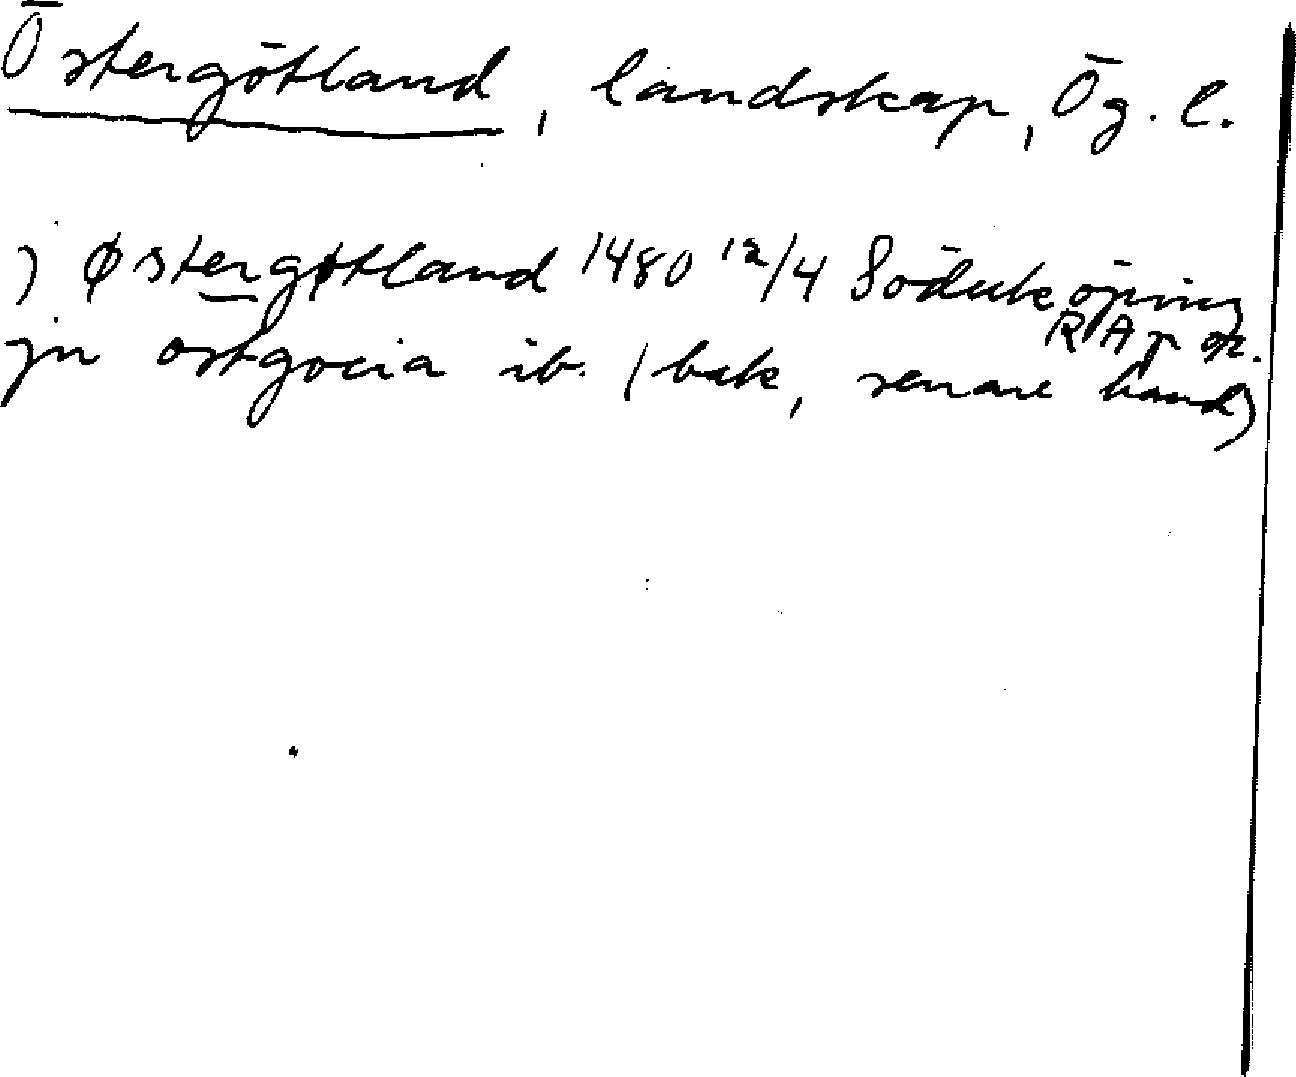 Östergötland, landskap, Ög. l.
j østergøtland 1480 12/4 Söderköping
RAp or.
jn ostgocia ib. (bak, senare hand)